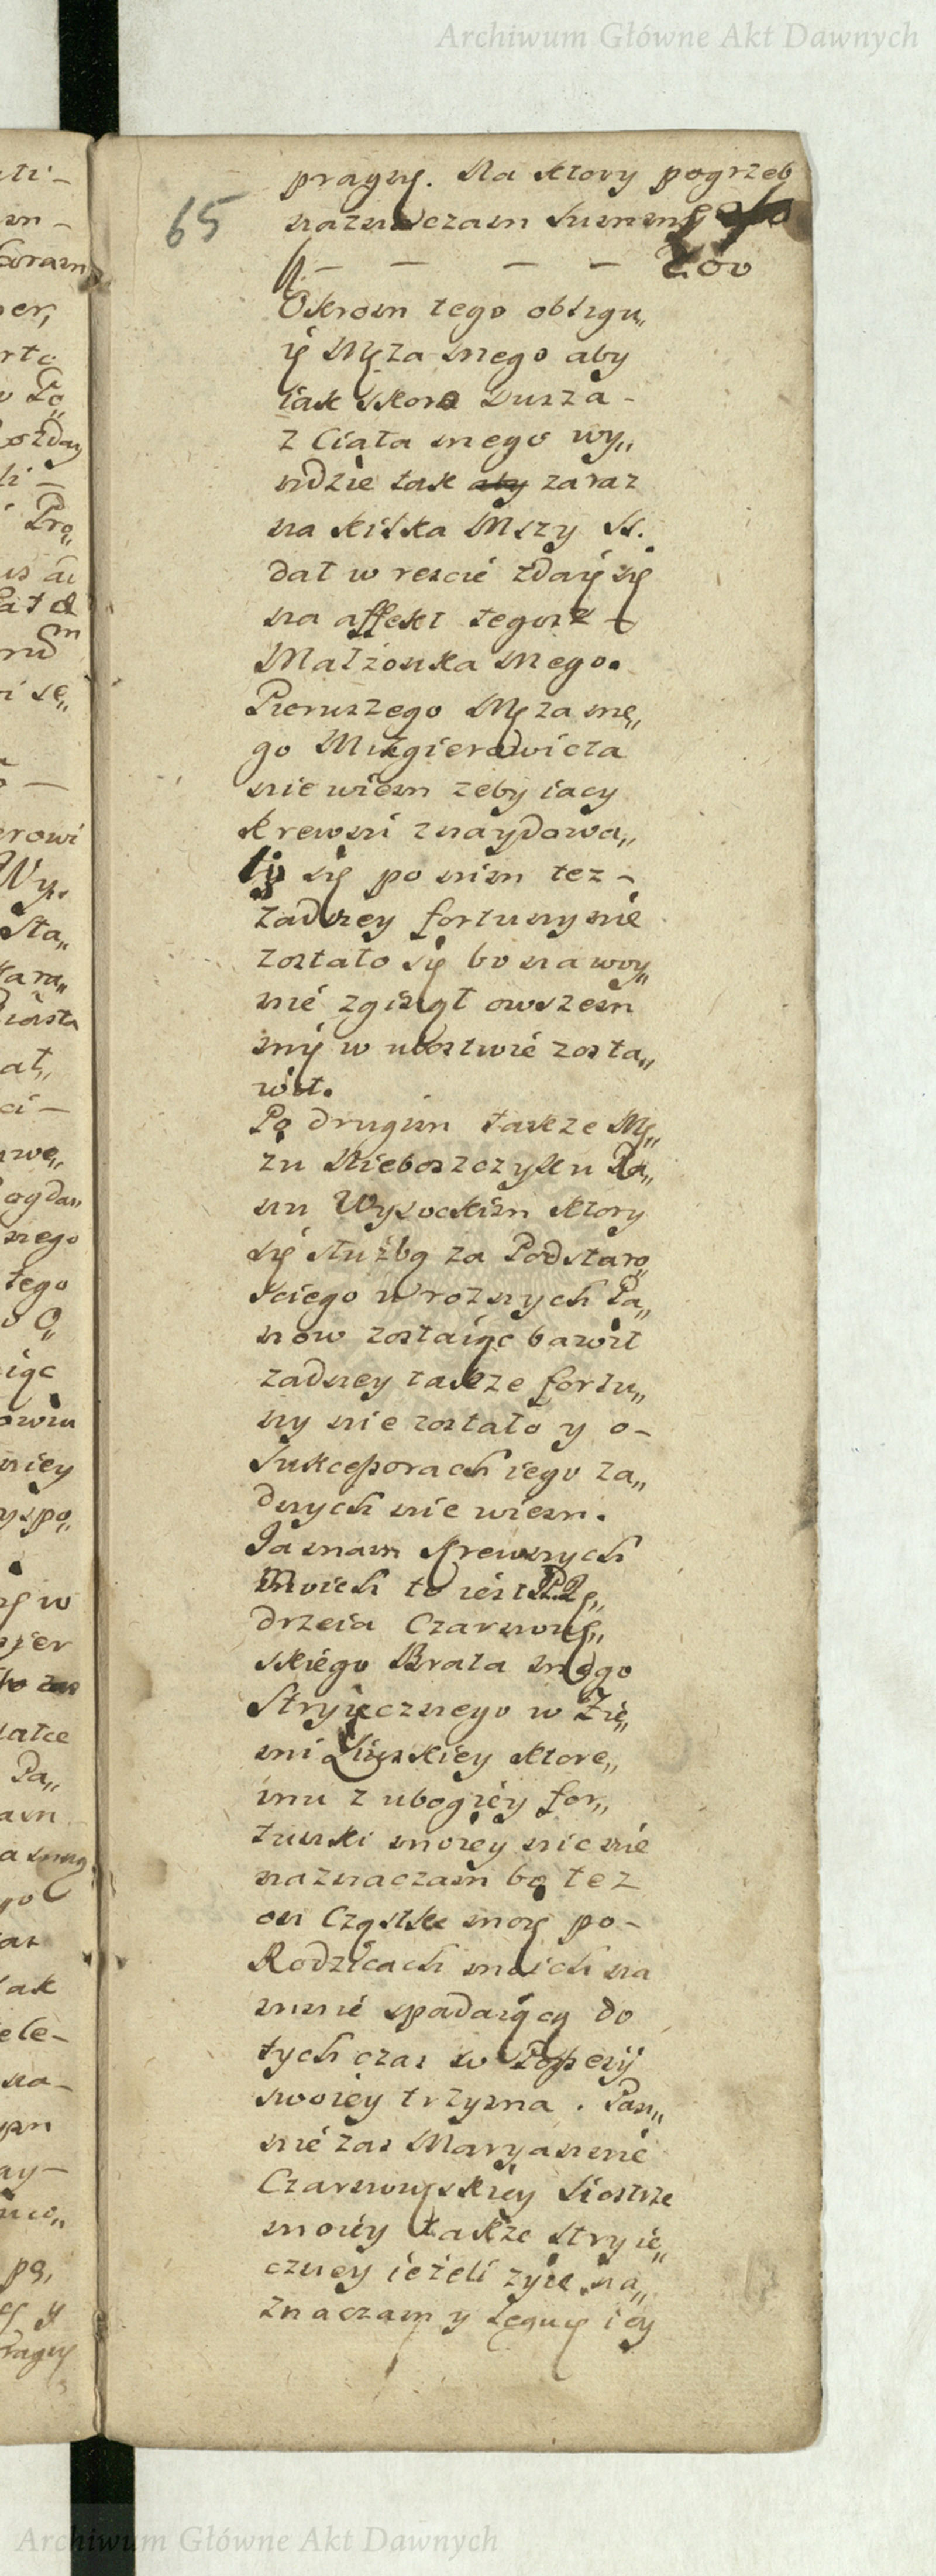 Archiwum Główne Akt Dawnych
65
pragnę. Na ktory pogrzeb
naznaczam Summę
fl. — — — — 200
Okrom tego obligu„
ię Męza mego aby
iak skoro Dusza -
z Ciała mego wy„
nidzie tak aby zaraz
na kilka Mszy SS.
dał w rescie zdaię się
na affekt tegoż
Małżonka mego.
Pierwszego Męza me„
go Mingierowicza
nie wiem zeby iacy
krewni znaydowa„
li się po nim tez -
zadney fortuny nie
zostało się bo na woy„
nie zginął owszem
mię w ubostwie zosta„
wił.
Po drugim takze Mę„
zu Nieboszczyku Pa„
nu Wysockim ktory
się służbą za Podstaro„
sciego u roznych Pa„
now zostaiąc bawił
zadney takze fortu„
ny nie zostało y o -
Sukcessorach iego za„
dnych nie wiem.
Ja mam Krewnych
Moich to iest
drzeia Czarnow„
skiego Brata mego
Stryiecznego w Zie„
mi Liwskiey ktore„
mu z ubogiey for„
tunki moiey nic nie
naznaczam bo tez
on Cząstke moię po -
Rodzicach moich na
mnie spadaiącą do
tych czas w Possesyi
swoiey trzyma. Pan„
nie zas Maryannie
Czarnowskiey Siostrze
moiey także stryie„
czney ieżeli zyie na„
znaczam y Leguię iey
Archiwum Główne Akt Dawnych